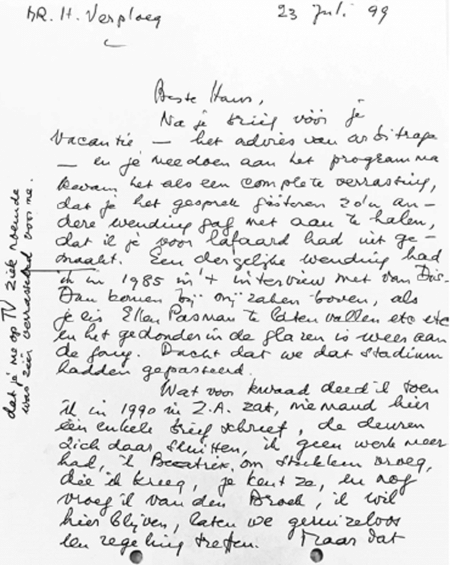 DR. H. Verploeg 23 Juli 99
Beste Hans,
Na je brief vóór je
vacantie – het advies van arbitrage
– en je meedoen aan het programma
kwam het als een complete verrassing,
dat je het gesprek gisteren zo'n an-
dere wending gaf met aan te halen,
dat ik je voor lafaard had uit ge-
maakt. Een dergelijke wending had
ik in 1985 in 't interview met van Dis.
Dan komen bij mij zaken boven, als
je eis Ellen Pasman te laten vallen etc etc
en het gedonder in de glazen is weer aan
de gang. Dacht dat we dat stadium
hadden gepasseerd.
Wat voor kwaad deed ik toen
ik in 1990 in Z.A. zat, niemand hier
één enkele brief schreef, de deuren
zich daar sluitten, ik geen werk meer
had, 'k Beatrix om vroeg,
die ik kreeg, je kent ze, en nog
vroeg ik van den Broek, ik wil
hier blijven, laten we geruizeloos
een regeling treffen. Maar dat
dat je me op TV ziek noemde
was zéér verrassend voor me.